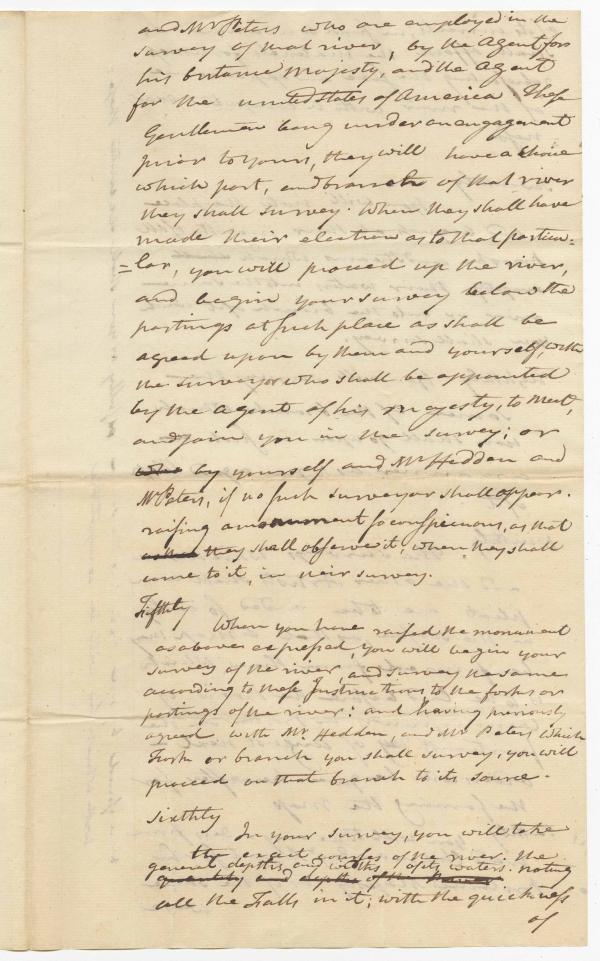 and Mr Peters who are employed in the
survey of that river, by the Agent for
his britanic Majesty, and the Agent
for the united states of America. These
Gentlemen being under an engagement
prior to yours, they will have a choice
which part, and branch of that river
they shall survey. When they shall have
made their election as to that particu=
=lar, you will proceed up the river,
and begin your survey below the
partings at such place as shall be
agreed upon by them and yourself, with
the surveyor who shall be appointed
by the Agent of his Majesty, to meet,
and join you in the survey; or
who by yourself and Mr Hedden and
Mr Peters, if no such surveyor shall appear.
raising a monument so conspicuous, as that
they shall observe it, when they shall
come to it, in their survey.
Fifthly
When you have raised the monument
as above expressed, you will begin your
survey of the river, and survey the same
according to these Instructions, to the forks or
partings of the river: and having previously
agreed with Mr. Hedden, and Mr Peters which
Fork or branch you shall survey, you will
proceed on that branch to its source.
Sixthly
In your survey, you will take
the exact courses of the river. the
general depths, and widths of its waters. noting
quantity and depths of the
all the Falls in it; with the quickness
of